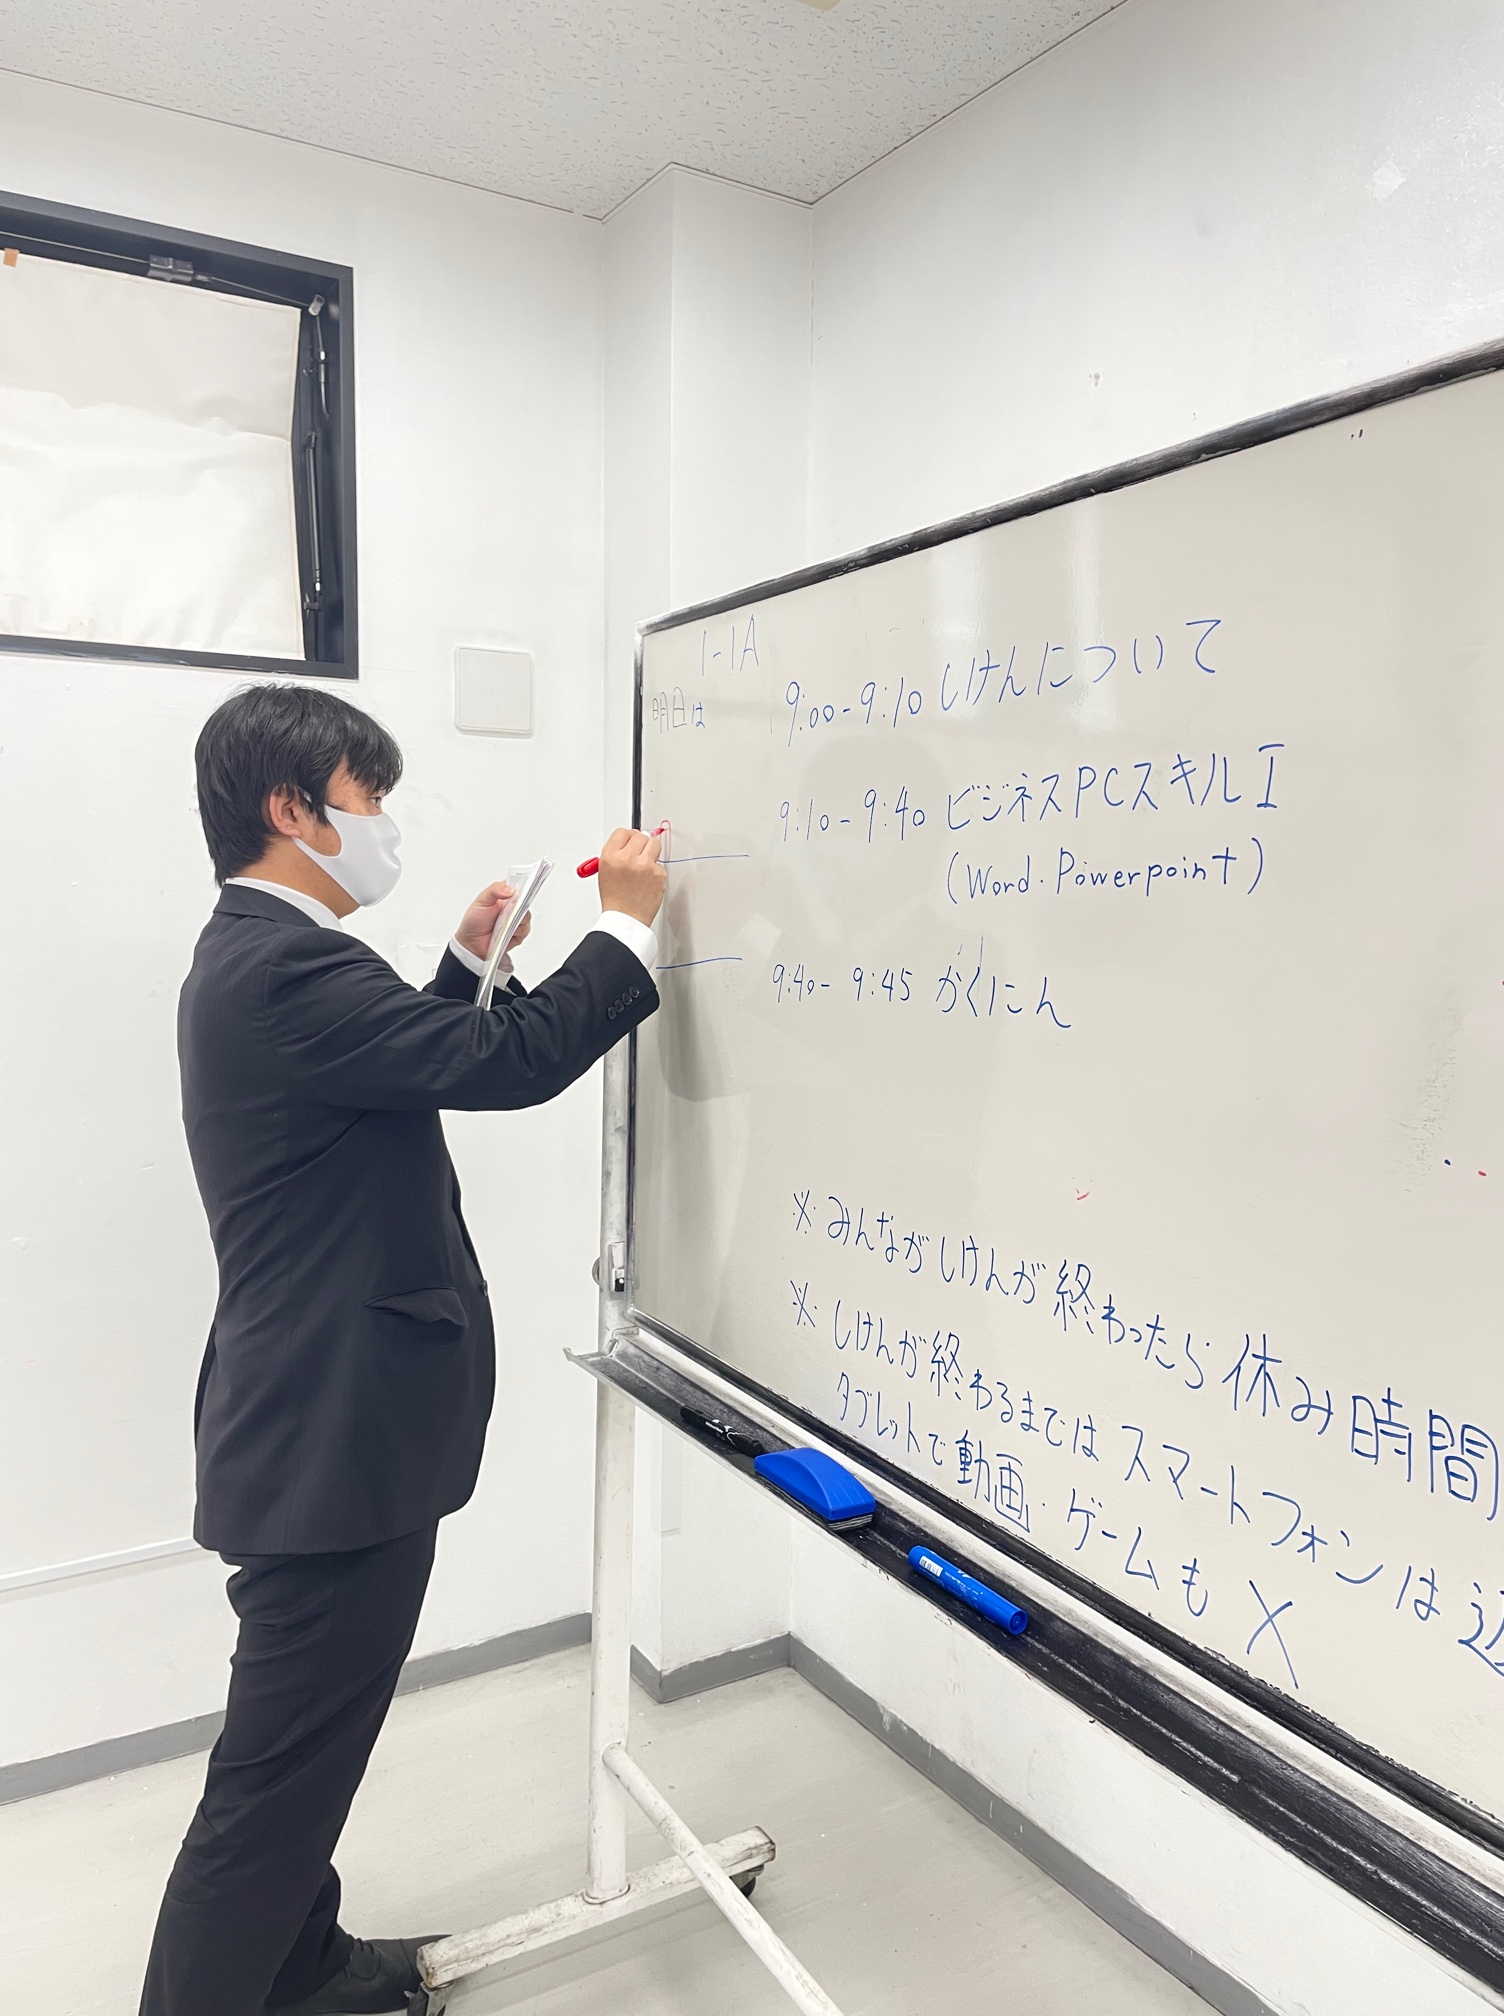 1-1A
明日は
9:00-9:10 しけんについて
9:10-9:40 ビジネスPCスキルI
(Word・Powerpoint)
9:40- 9:45 かくにん
※ みんながしけんが終わったら休み時間
※ しけんが終わるまではスマートフォンは
タブレットで動画・ゲームも×